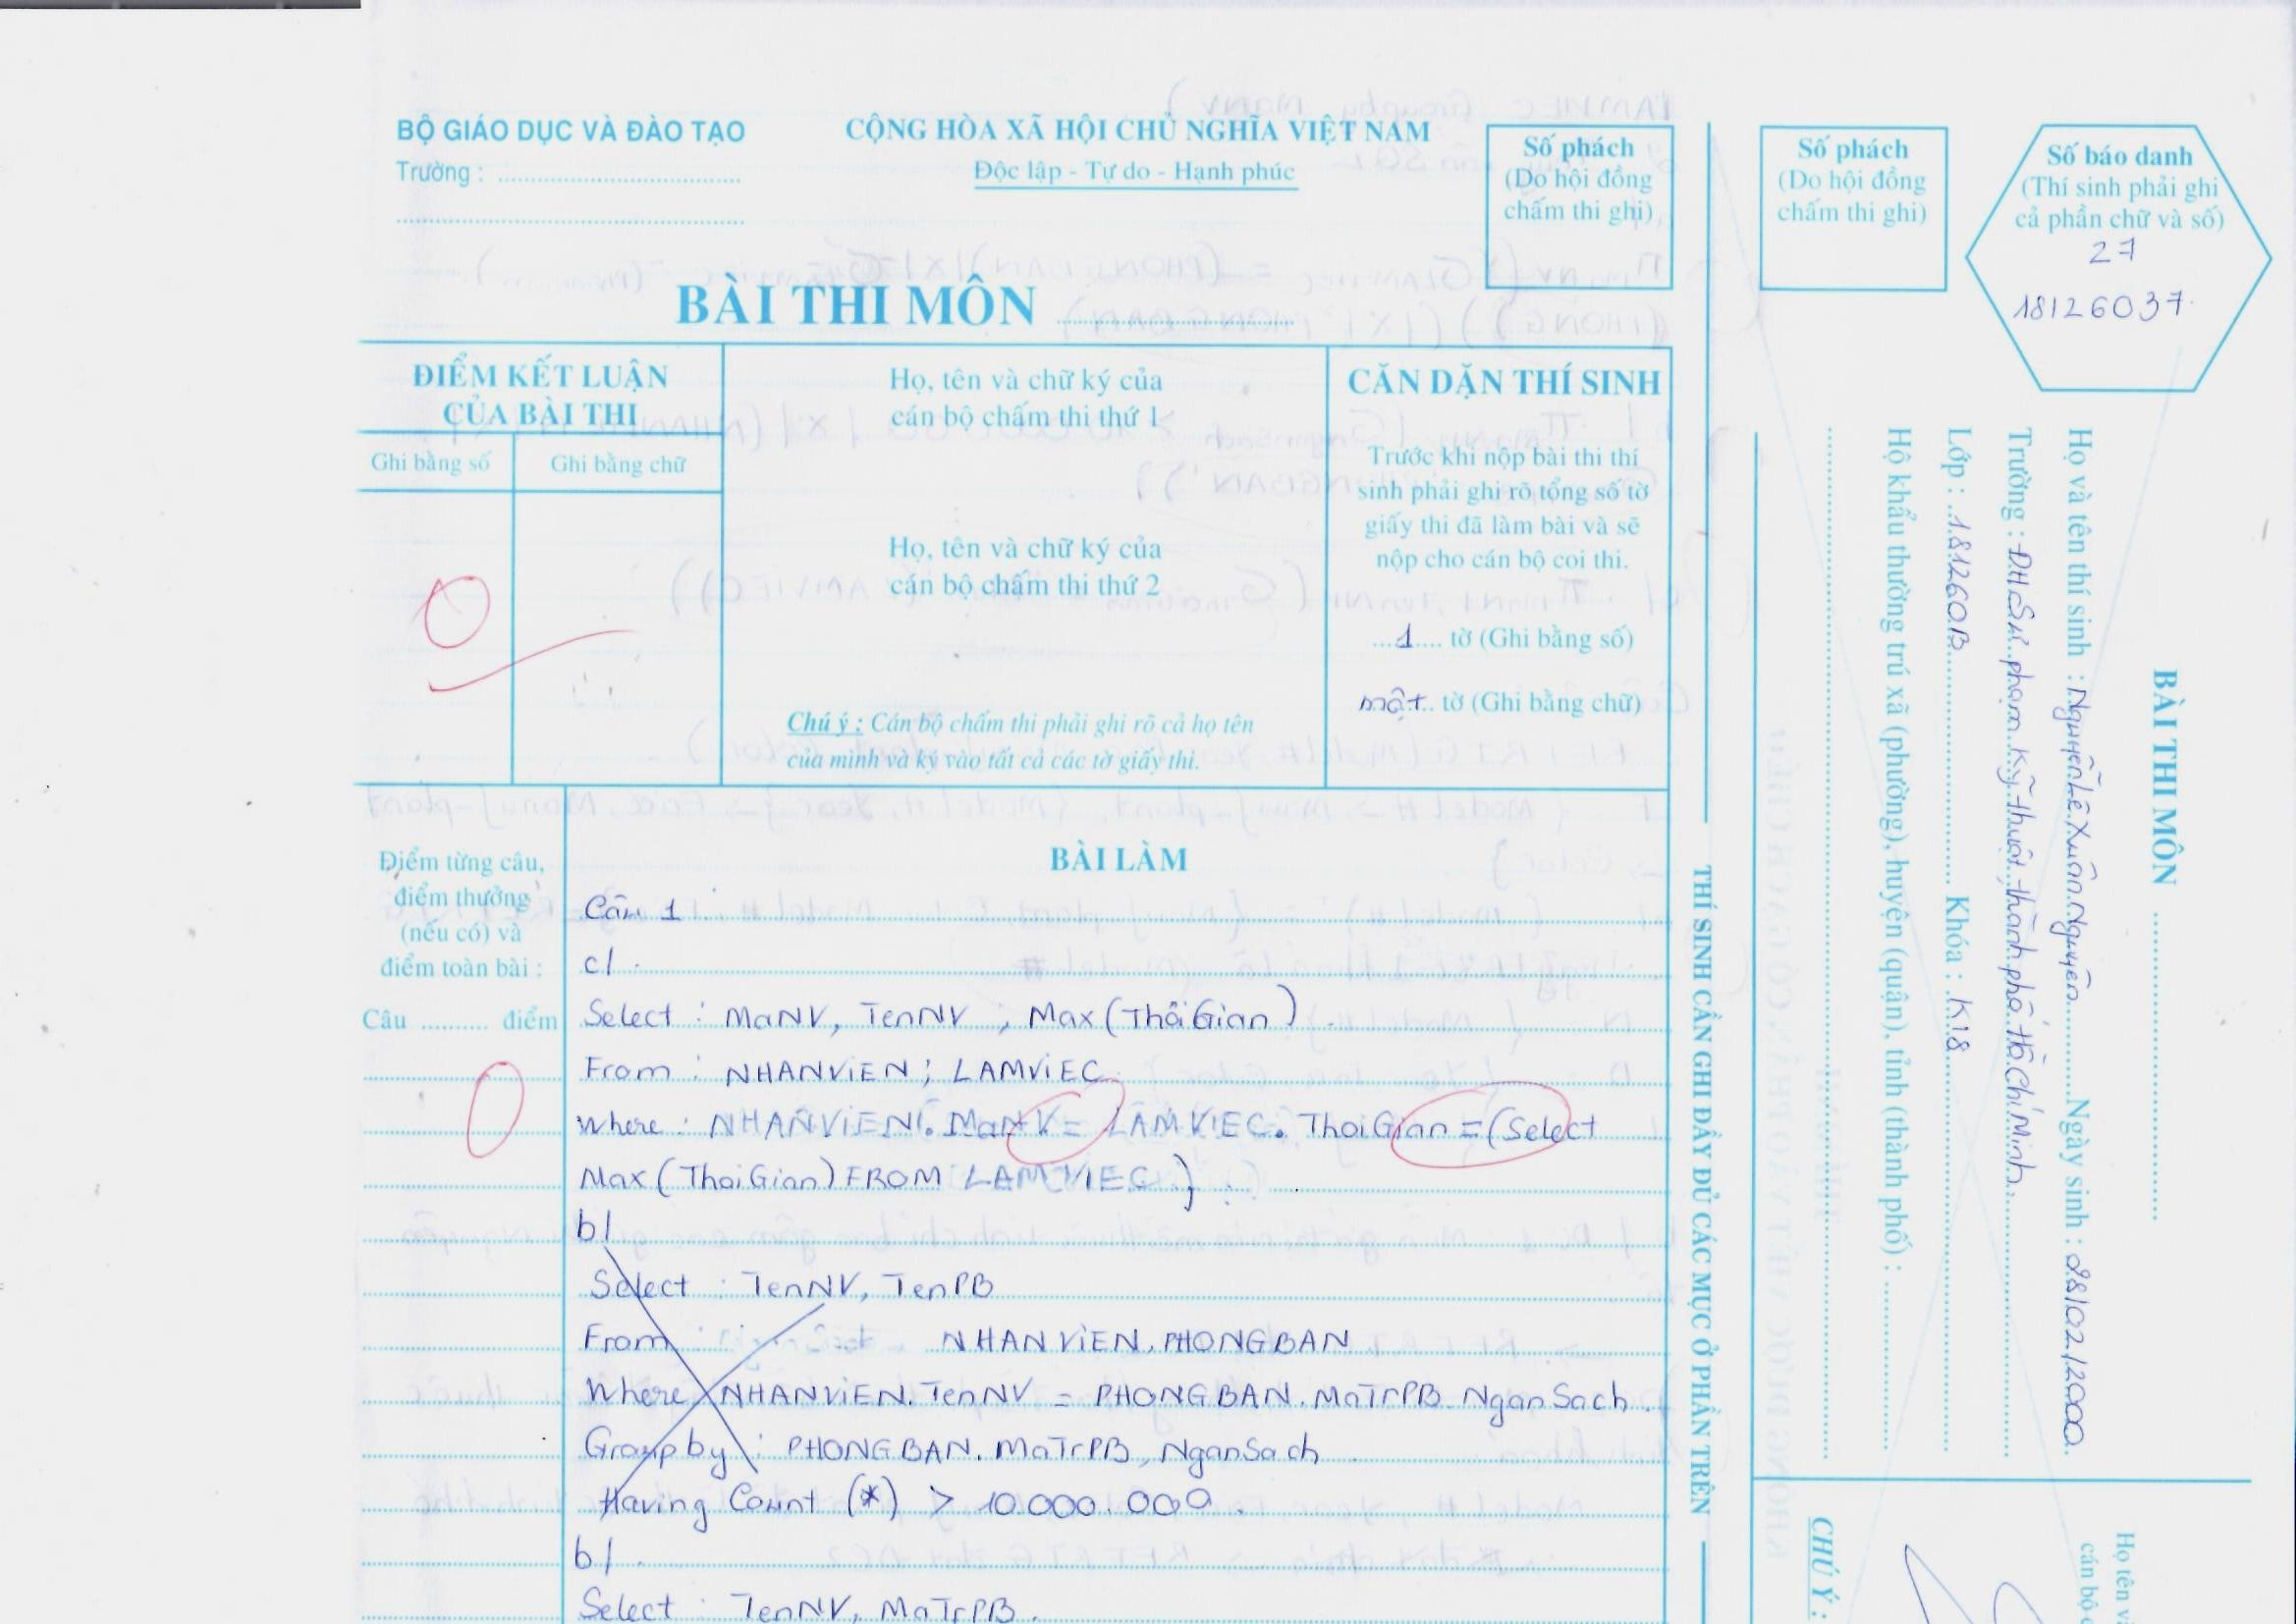 BỘ GIÁO DỤC VÀ ĐÀO TẠO
Trường : ....................................
....................................................
CỘNG HÒA XÃ HỘI CHỦ NGHĨA VIỆT NAM
Độc lập - Tự do - Hạnh phúc
Số phách
(Do hội đồng
chấm thi ghi)
BÀI THI MÔN ..............................
ĐIỂM KẾT LUẬN
CỦA BÀI THI
Ghi bằng số
Ghi bằng chữ
0
Họ, tên và chữ ký của
cán bộ chấm thi thứ 1
Họ, tên và chữ ký của
cán bộ chấm thi thứ 2
Chú ý : Cán bộ chấm thi phải ghi rõ cả họ tên
của mình và ký vào tất cả các tờ giấy thi.
CĂN DẶN THÍ SINH
Trước khi nộp bài thi thí
sinh phải ghi rõ tổng số tờ
giấy thi đã làm bài và sẽ
nộp cho cán bộ coi thi.
...1.... tờ (Ghi bằng số)
một.. tờ (Ghi bằng chữ)
Điểm từng câu,
điểm thưởng
(nếu có) và
điểm toàn bài :
Câu .......... điểm
0
BÀI LÀM
Câu 1 :
c/ .
Select : MaNV, TenNV , Max (ThờiGian) .
From : NHANVIEN ; LAMVIEC
Where : NHANVIEN. MaNV = LAMVIEC. ThoiGian = (Select
Max (ThoiGian) FROM LAMVIEC ) .
b/
Select : TenNV, TenPB
From : NHANVIEN, PHONGBAN
Where NHANVIEN. TenNV = PHONGBAN. MaTrPB NganSach .
Group by : PHONGBAN. MaTrPB, NganSach .
Having Count (*) > 10.000.000 .
b/ .
Select : TenNV, MaTrPB .
THÍ SINH CẦN GHI ĐẦY ĐỦ CÁC MỤC Ở PHẦN TRÊN
Số phách
(Do hội đồng
chấm thi ghi)
Số báo danh
(Thí sinh phải ghi
cả phần chữ và số)
27
18126037
BÀI THI MÔN ........................................
Họ và tên thí sinh : Nguyễn Lê Xuân Nguyên ........ Ngày sinh : 28/02/2000
Trường : ĐH Sư phạm Kỹ thuật thành phố Hồ Chí Minh
Lớp : 181260B ........ Khóa : K18
Hộ khẩu thường trú xã (phường), huyện (quận), tỉnh (thành phố) : ....................
CHÚ Ý :
Họ tên và
cán bộ